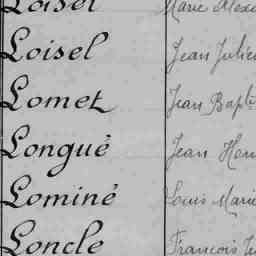 Loisel Marie
Loisel Jean Julien
Lomet Jean
Longué Jean
Lominé Louis Marie
Loncle François